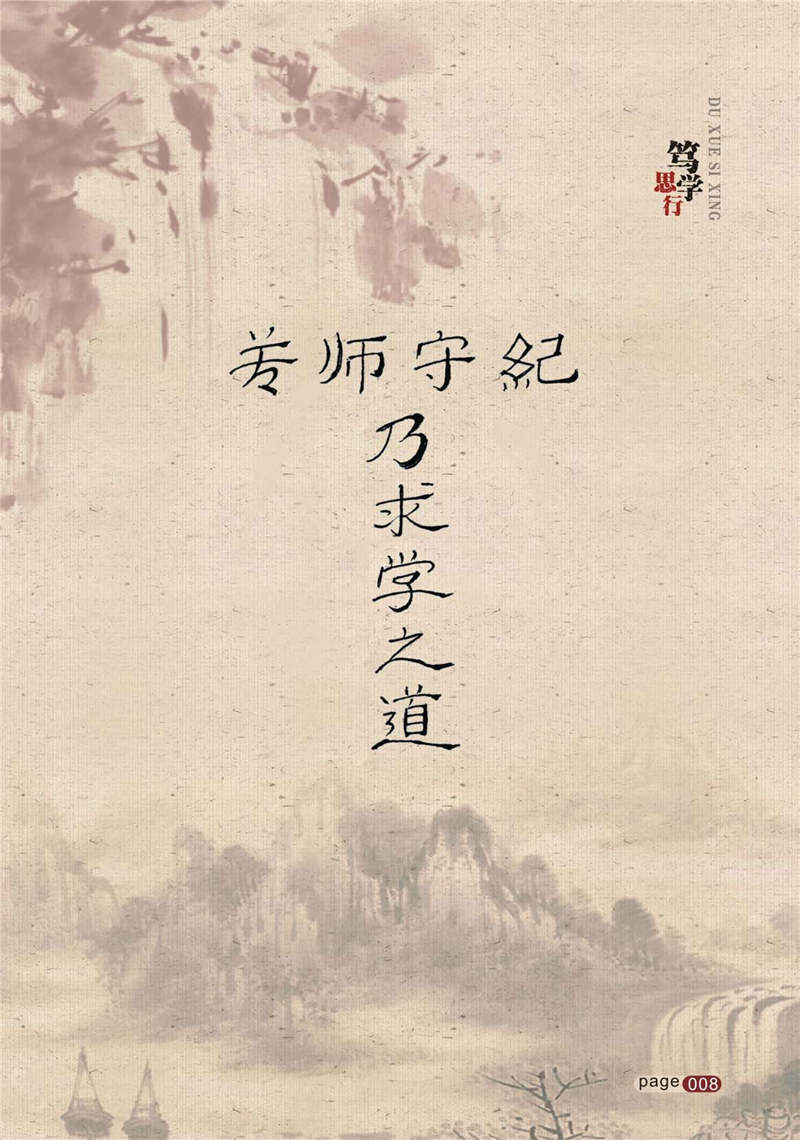 笃学
思行
DU XUE SI XING
尊师守纪
乃求学之道
page 008